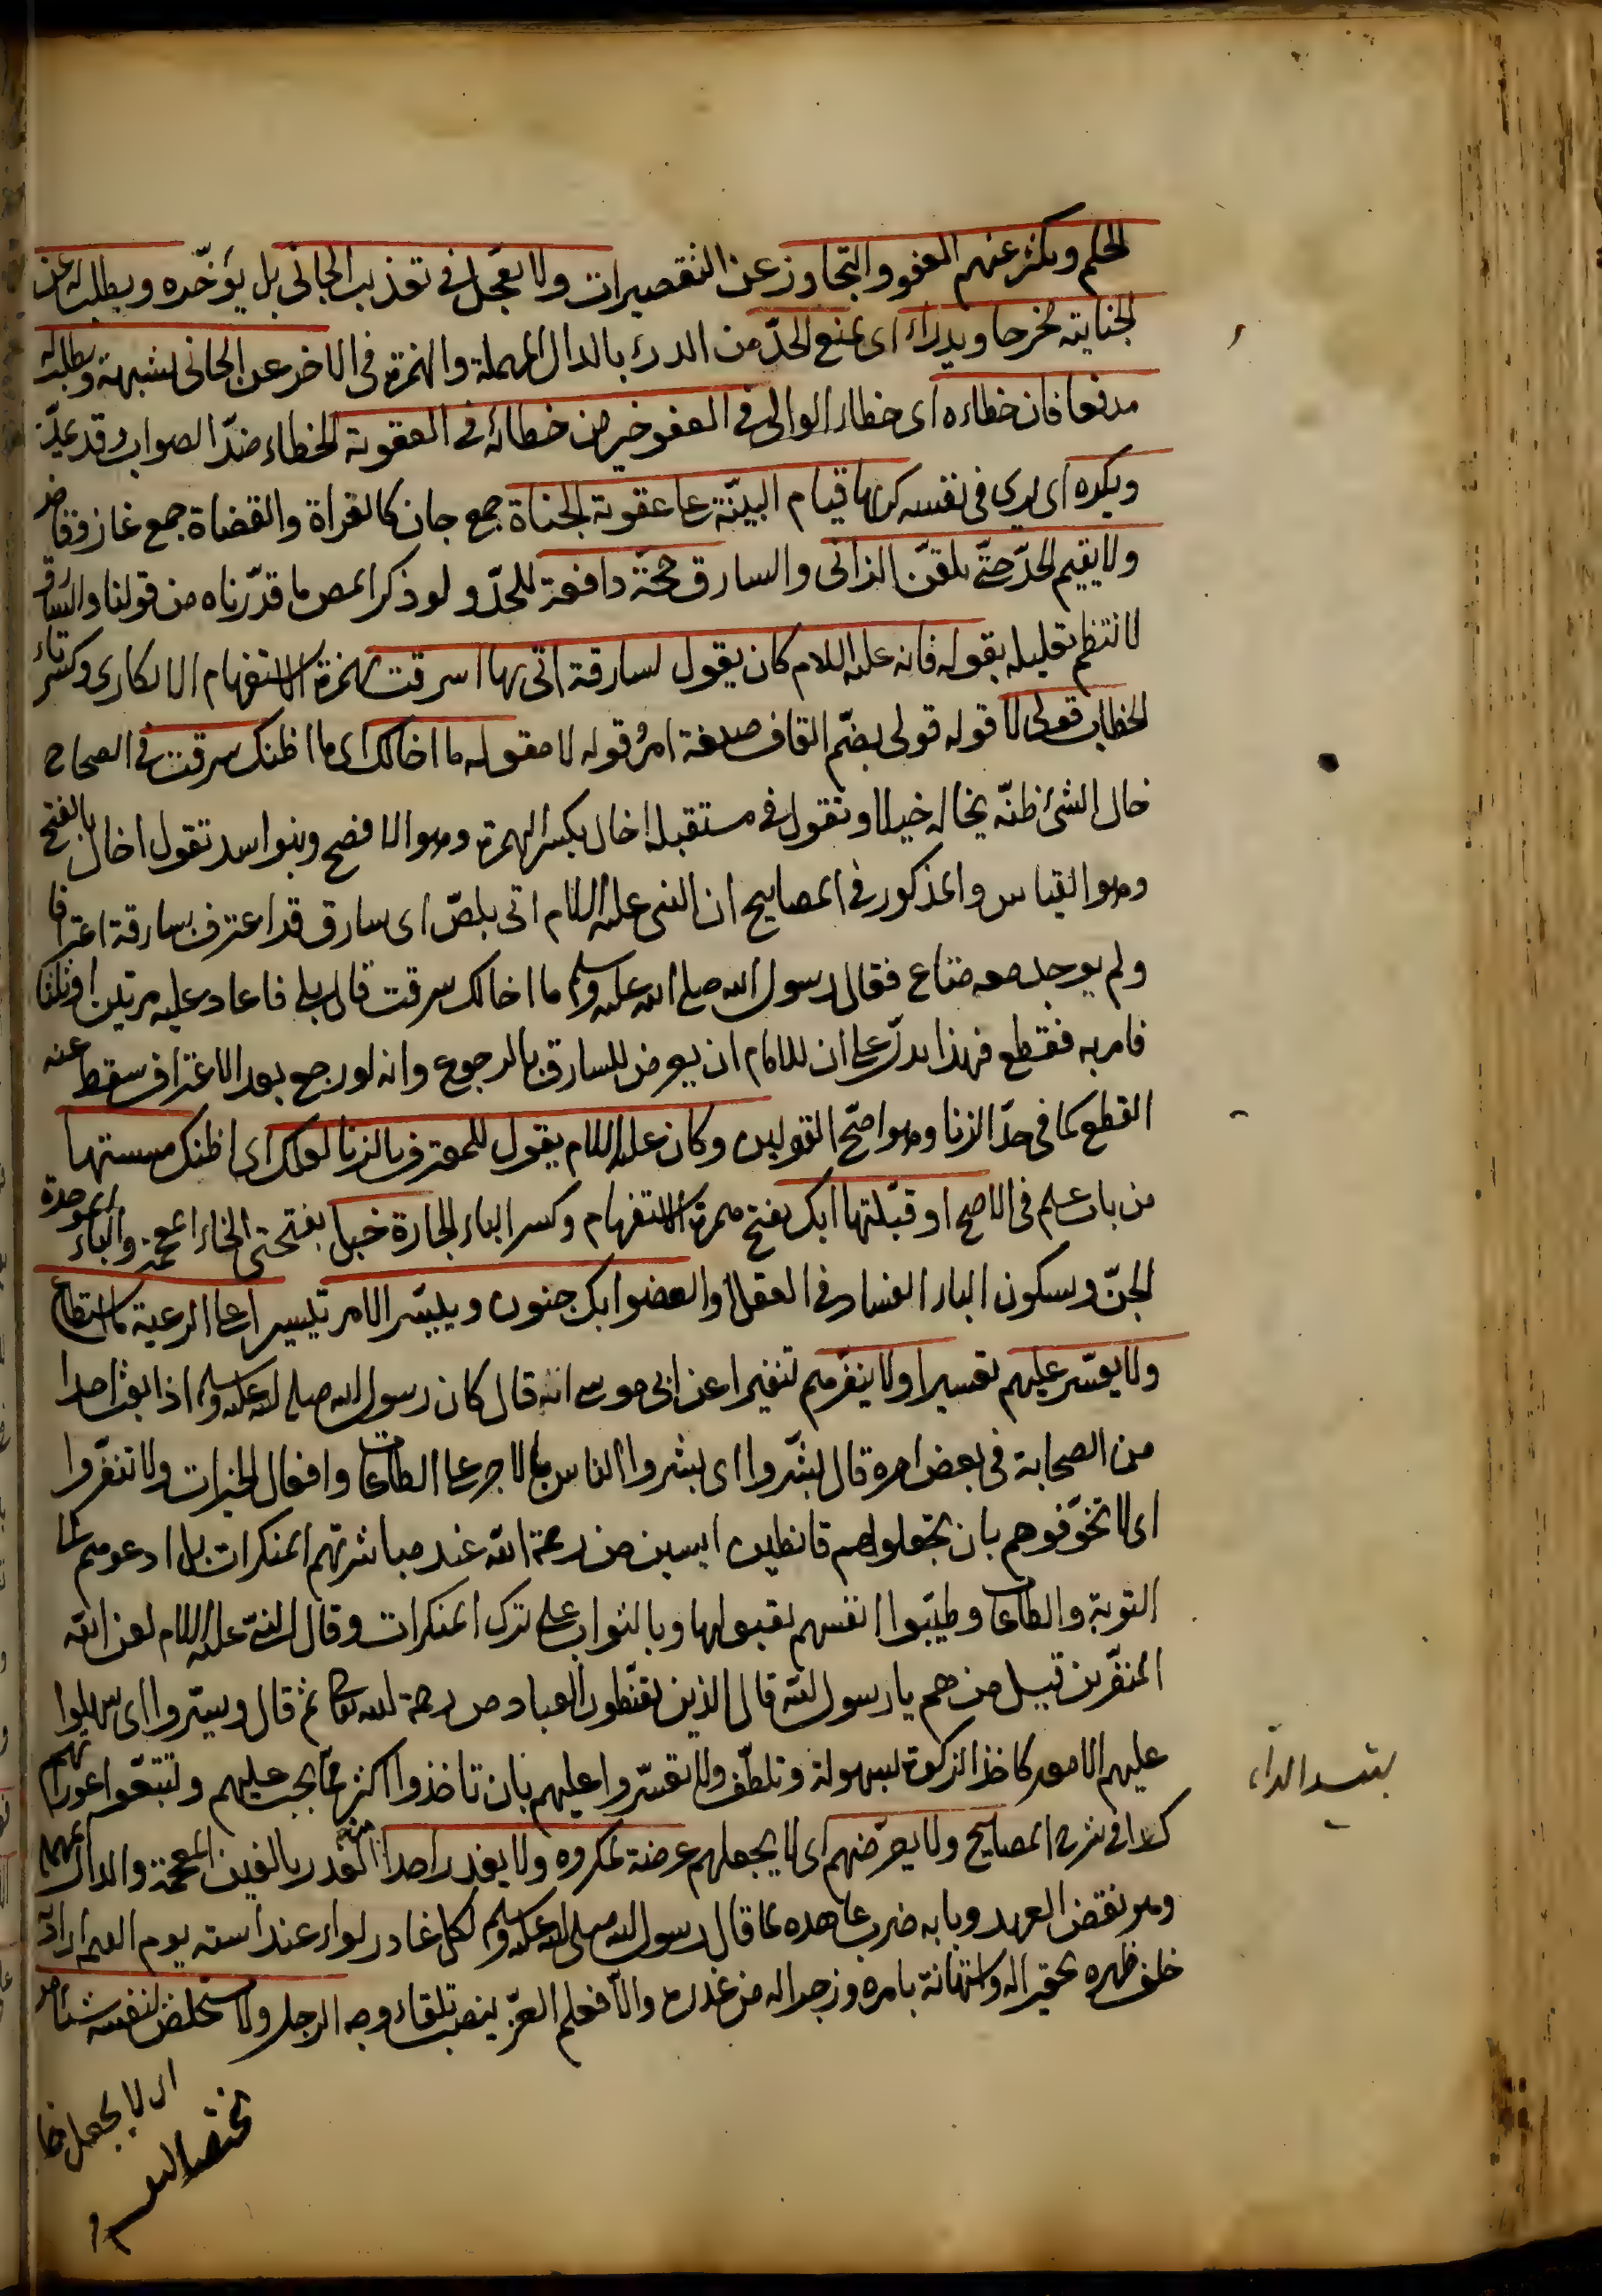 الحلم ويكثر عنهم العفو والتجاوز عن التقصيرات ولا يعجل في تعذيب الجاني بل يؤخّره ويطلب له عن
الجناية مخرجا ويدراء اى يمنع الحدّ من الدرء بالدال المهملة والهمزة في الاخر عن الجاني بشبهة ويطلب له
مدفعا فان خطاءه اى خطاء الوالى في العفو خير من خطائه في العقوبة الخطاء ضدّ الصواب وقد يمدّ
ويكره اى يرى في نفسه كرها قيام البيّنة على عقوبة الجناة جمع جان كالغزاة والقضاة جمع غاز وقاض
ولا يقيم الحدّ حتّى يلقّن الزانى والسارق حجّة دافعة للحدّ ولو ذكر المص ما قدّرناه من قولنا والسارق
لانتظم تعليله بقوله فانه عليه السلام كان يقول لسارقة اتى بها اسرقت بهمزة الاستفهام الانكارى وكسر تاء
الخطاب قولى لا قوله قولى بضمّ القاف صيغة امر قوله لا مقوله ما اخالك اى ما اظنك سرقت في الصحاح
خال الشئ ظنّه يخاله خيلا وتقول في مستقبله اخال بكسر الهمزة وهو الافصح وبنوا اسد تقول اخال بالفتح
وهو القياس والمذكور في المصابيح ان النبى عليه السلام اتى بلصّ اى سارق قد اعترف بسارقة اعترافا
ولم يوجد معه متاع فقال رسول الله صلى الله عليه وسلم ما اخالك سرقت قال بلى فاعاد عليه مرتين او ثلثا
فامر به فقطع فهذا يدلّ على ان للامام ان يعرض للسارق بالرجوع وانه لو رجع بعد الاعتراف سقط عنه
القطع كما في حدّ الزنا وهو اصحّ القولين وكان عليه السلام يقول للمعترف بالزنا لعلك اى اظنك مسستها
من باب علم في الاصح او قبّلتها ابك بفتح همزة الاستفهام وكسر الباء الجارة خبل بفتحتى الخاء المعجمة والباء الموحدة
الجنّ وبسكون الباء الفساد في العقل او العضو ابك جنون وييسّر الامر تيسيرا على الرعية ما استطاع
ولا يعسّر عليهم تعسيرا ولا ينفّرهم تنفيرا عن ابى موسى انه قال كان رسول الله صلى الله عليه وسلم اذا بعث احدا
من الصحابة في بعض امره قال بشّروا اى بشروا الناس بالاجر على الطاعات وافعال الخيرات ولا تنفّروا
اى لا تخوّفوهم بان تجعلوهم قانطين ايسين من رحمة الله عند مباشرتهم المنكرات بل ادعوهم الى
التوبة والطاعات وطيّبوا انفسهم بقبولها وبالثواب على ترك المنكرات وقال النبىّ عليه السلام لعن الله
المنفّرين قيل من هم يا رسول الله قال الذين يقنّطون العباد من رحمة الله تعالى ثم قال ويسّروا اى سهلوا
عليهم الامور كاخذ الزكوة بسهولة وتلطّف ولا تعسّروا عليهم بان تاخذوا اكثر ممّا يجب عليهم وتتبّعوا عوراتهم
كذا في شرح المصابيح ولا يعرّضهم اى لا يجعلهم عرضة لمكروه ولا يغدر احدا منهم الغدر بالغين المعجمة والدال المهملة
وهو نقض العهد وبابه ضرب عاهده كما قال رسول الله صلى الله عليه وسلم لكل غادر لواء عند استه يوم القيمة اى
خلف ظهره تحقيرا له واستهانة بامره وزجرا له من غدره والّا فعلم العزّ ينصب تلقاء وجه الرجل ولا يستخلص لنفسه شيئا
بتشديد الراء
اى لا يجعل
مختصا لنفسه